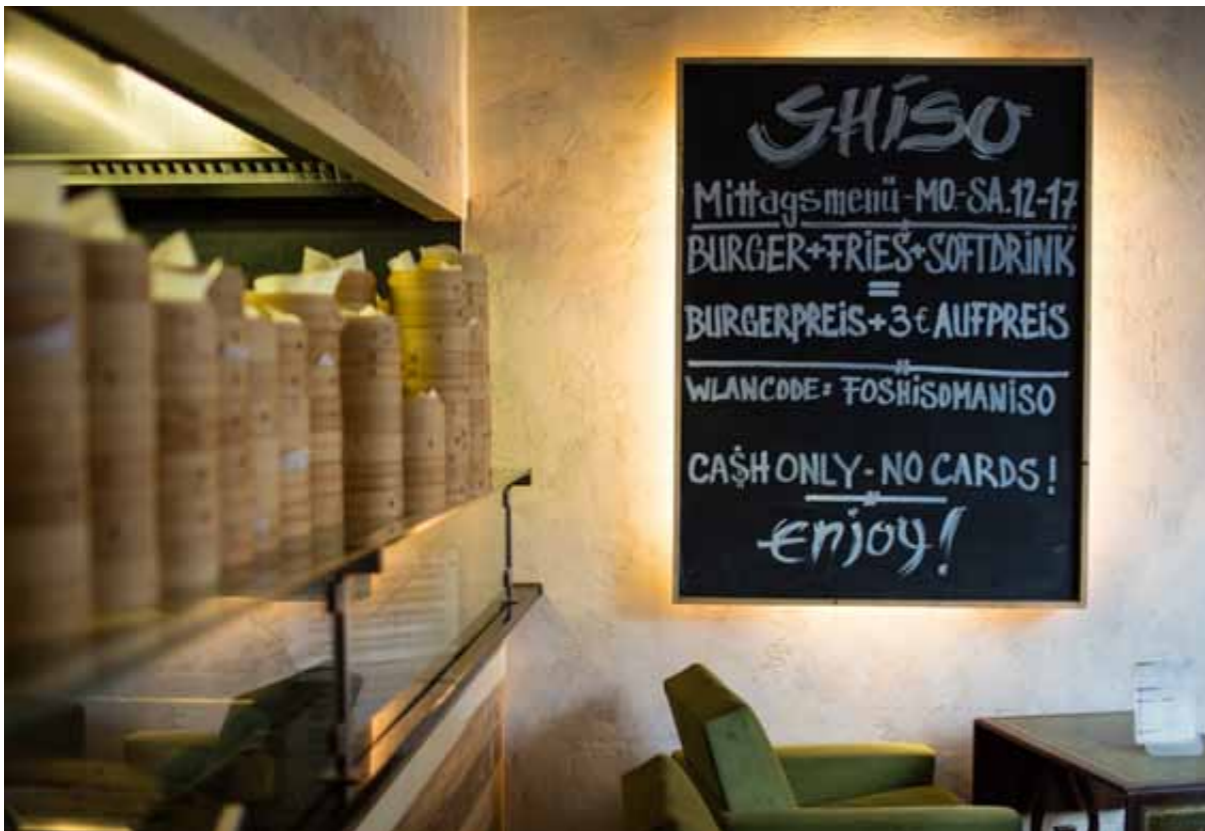 SHiSO
Mittagsmenü-MO-SA.12-17
BURGER+FRiES+SOFTDRiNK
=
BURGERPREiS+3€ AUFPREiS
WLANCODE: FOSHiSOMANiSO
CA$H ONLY-NO CARDS!
enjoy!